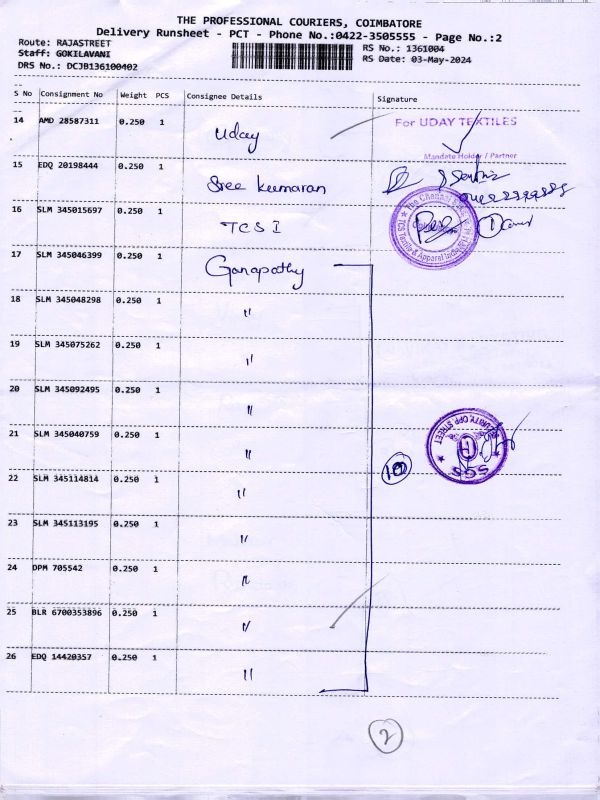 THE PROFESSIONAL COURIERS, COIMBATORE
Delivery Runsheet - PCT - Phone No.:0422-3505555 - Page No.:2
Route: RAJASTREET
RS No.: 1361004
Staff: GOKILAVANI
RS Date: 03-May-2024
DRS No.: DCJB136100402
S No Consignment No Weight PCS Consignee Details Signature
14 AMD 28587311 0.250 1 Uday
For UDAY TEXTILES
Mandate Holder / Partner
15 EDQ 20198444 0.250 1 Sree Kumaran
16 SLM 345015697 0.250 1 TCS I
17 SLM 345046399 0.250 1 Ganapathy
18 SLM 345048298 0.250 1 "
19 SLM 345075262 0.250 1 "
20 SLM 345092495 0.250 1 "
21 SLM 345040759 0.250 1 "
SECURITY, OPP STREET
SGS
22 SLM 345114814 0.250 1 "
10
23 SLM 345113195 0.250 1 "
24 DPM 705542 0.250 1 "
25 BLR 6700353896 0.250 1 "
26 EDQ 14420357 0.250 1 "
2